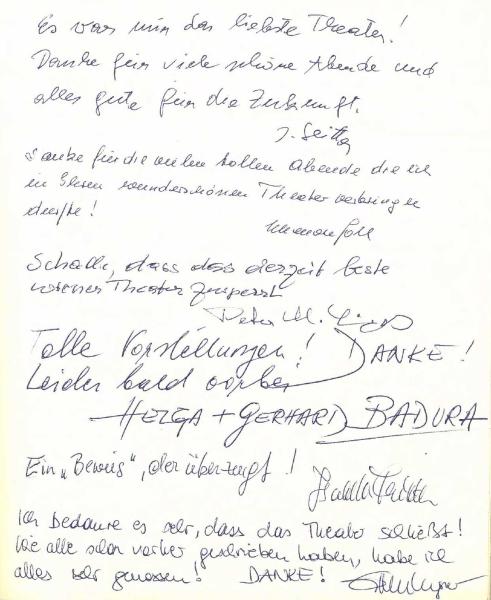 Es war mir das liebste Theater!
Danke für viele schöne Abende und
alles gute für die Zukunft.
Danke für die vielen tollen Abende die ich
in Ihrem wunderschönen Theater verbringen
durfte!
Schade, dass das derzeit beste
wiener Theater zusperrt
Peter M.
Tolle Vorstellungen! DANKE!
Leider bald vorbei
HELGA + GERHARD BADURA
Ein "Beweis", der überzeugt!
Ich bedaure es sehr, dass das Theater schließt!
Wie alle schon vorher geschrieben haben, habe ich
alles sehr genossen! DANKE!